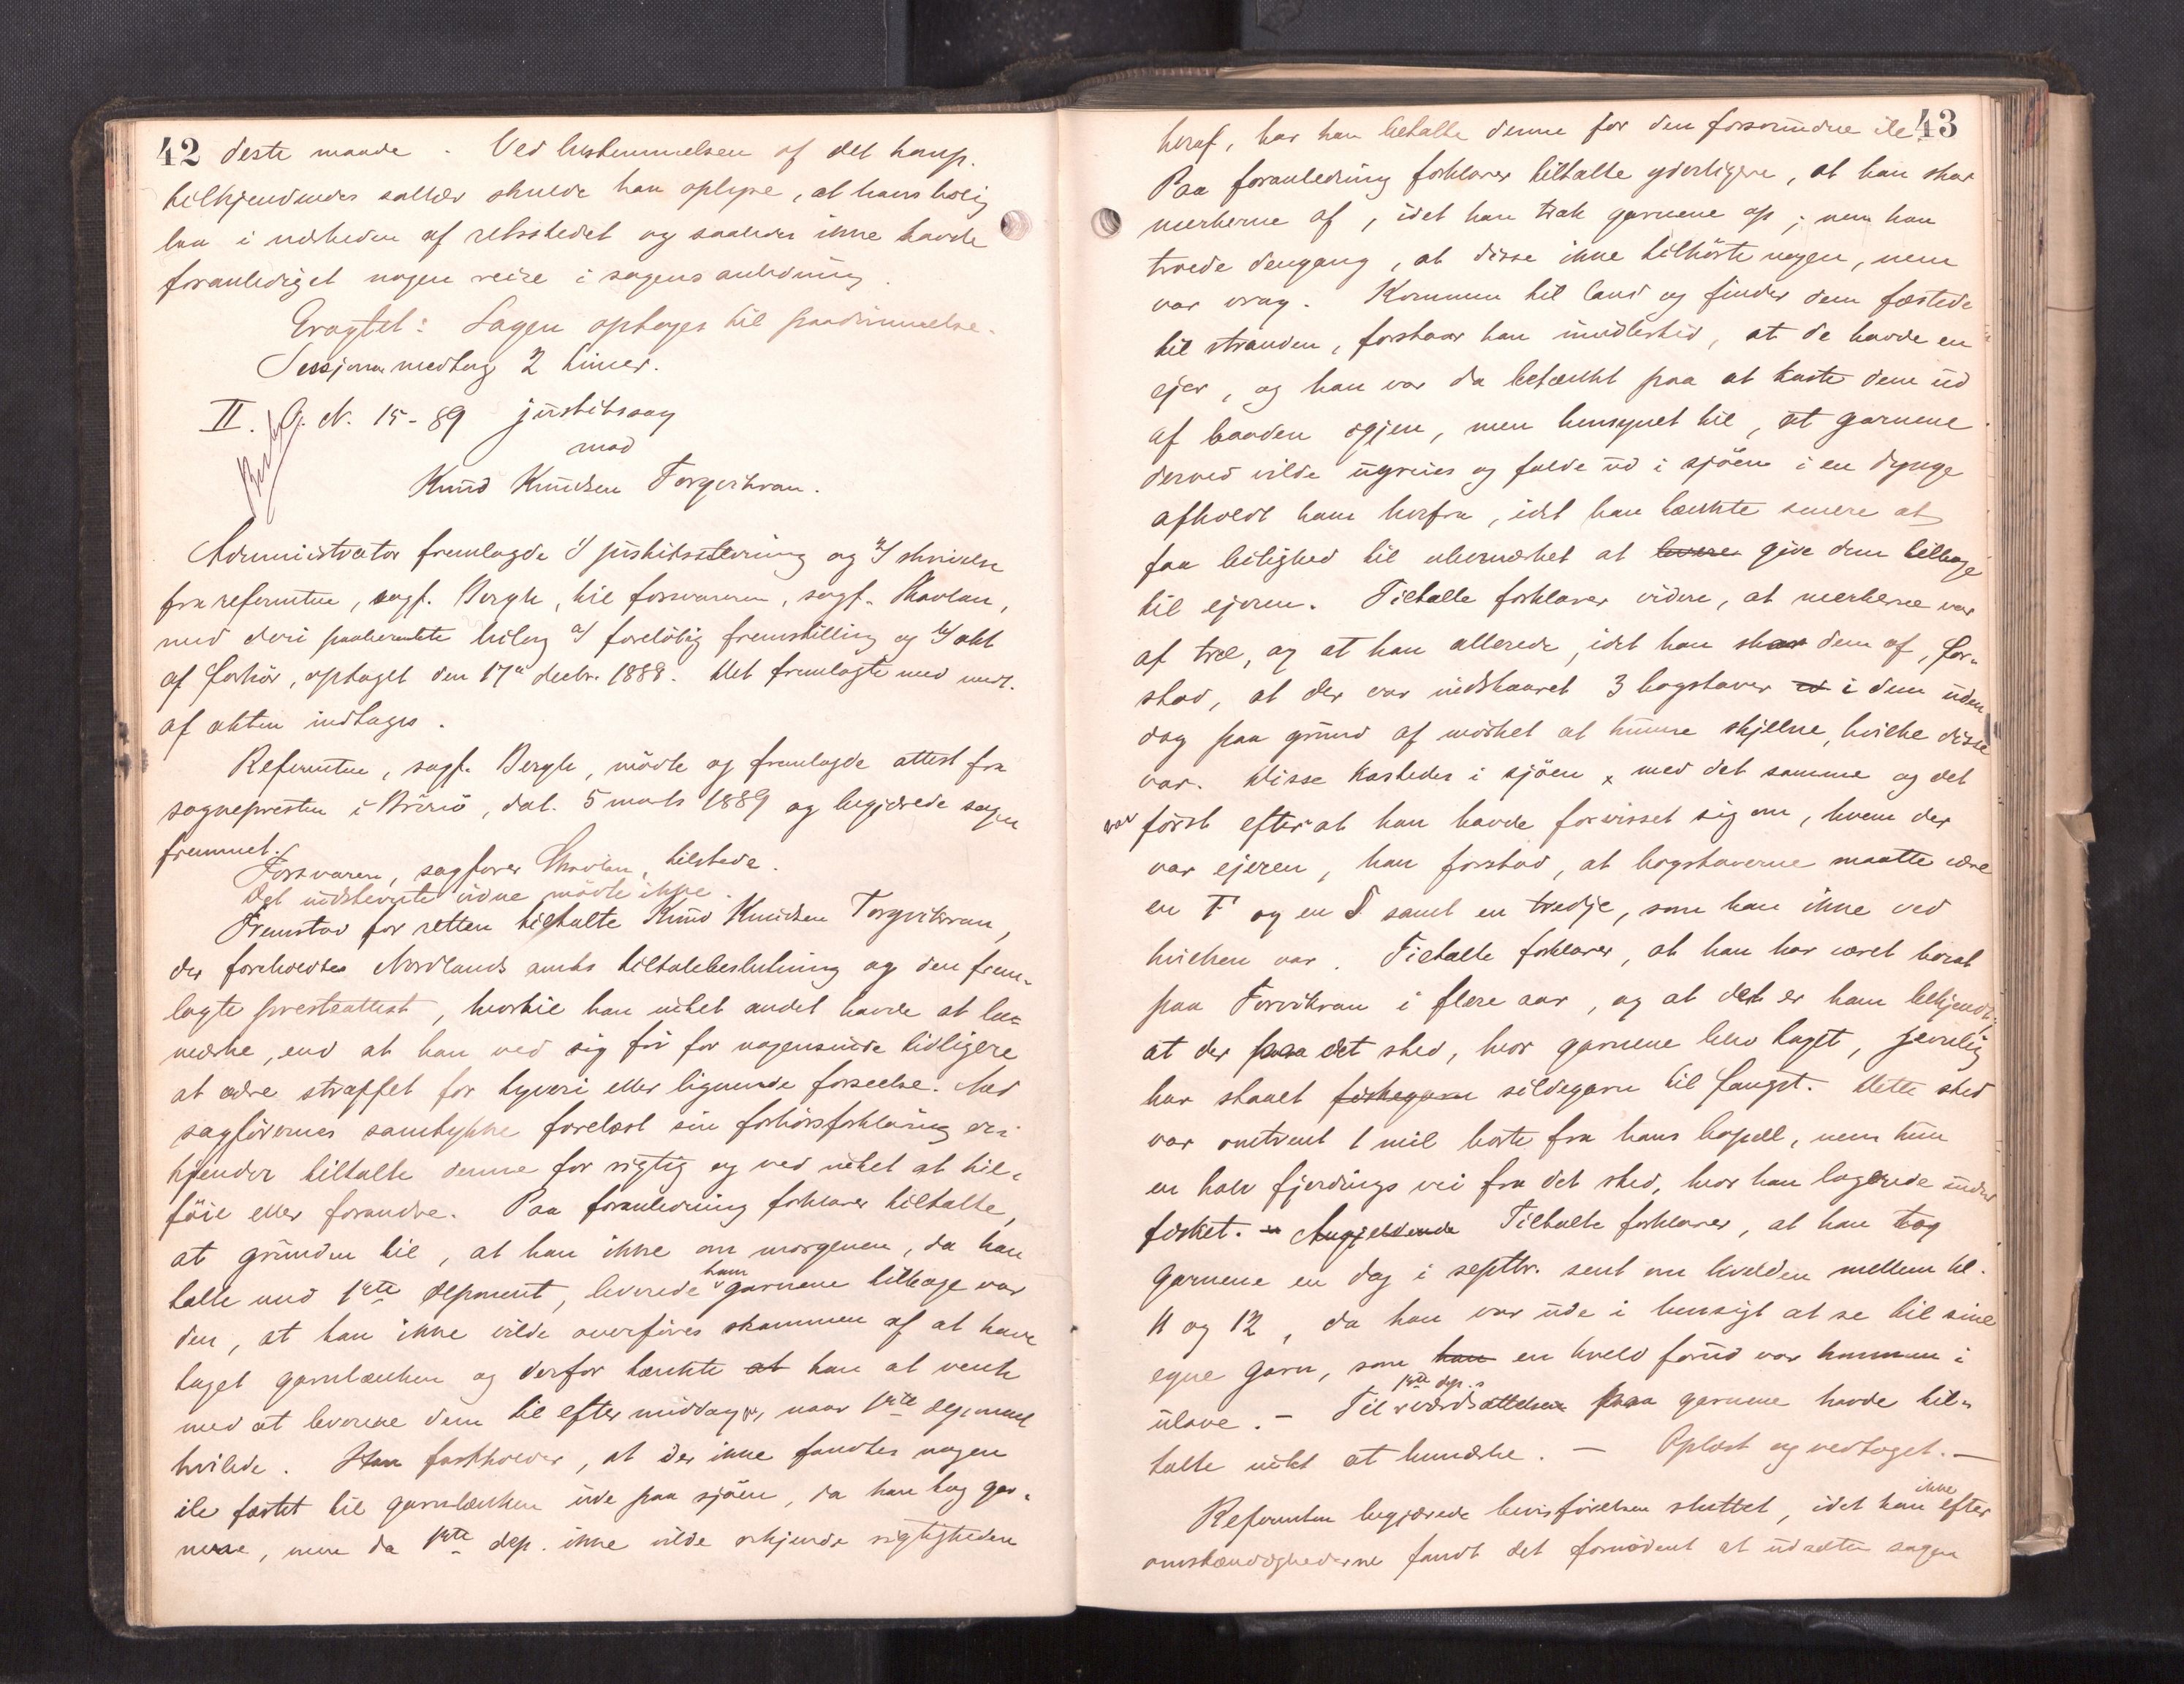 42 deste maade. Ved bestemmelsen af det ham
tilkjendendes sallær skulde han oplyse, at hans bolig
laa i nærheden af retsstedet og saaledes ikke havde
foranlediget nogen reise i sagens anledning.
Eragtet: Sagen optages til paadømmelse.
Sessjonen medtog 2 timer.
II. G. N. 15-89 justitssag
mod
Knud Knudsen Torgvikran.
Administrator fremlagde 1/ justitsstevning og 2/ skrivelse
fra referenten, sagf. Bergh, til forsvareren, sagf. Skavlan,
med deri paaberaabte bilag a/ foreløbig fremstilling og b/ akt
af forhør, optaget den 17de decbr. 1888. Det fremlagte med undt.
af akten indtages.
Referenten, sagf. Bergh, mødte og fremlagde attest fra
sognepresten i Brønø, dat. 5 marts 1889 og begjærede sagen
fremmet.
Forsvareren, sagfører Skavlan, tilstede.
Det indstevnte vidne mødte ikke.
Fremstod for retten tiltalte Knud Knudsen Torgvikran,
der foreholdtes Nordlands amts tiltalebeslutning og den frem-
lagte presteattest, hvortil han intet andet havde at be-
mærke, end at han ved sig fri for nogensinde tidligere
at være straffet for tyveri eller lignende forseelse. Med
sagførernes samtykke forelæst sin forhørsforklaring ved-
kjender tiltalte denne for rigtig og ved intet at til-
føie eller forandre. Paa foranledning forklarer tiltalte,
at grunden til, at han ikke om morgenen, da han
talte med 1ste deponent, leverede ham garnene tilbage var
den, at han ikke vilde overføres skammen af at have
taget garnlænken og derfor tænkte at han at vente
med at leverere dem til eftermiddagen, naar 1ste deponent
hvilede. Han fastholder, at der ikke fandtes nogen
ile fæstet til garnlænken ude paa sjøen, da han tog gar-
nene, men da 1ste dep. ikke vilde erkjende rigtigheden
43
heraf, har han betalte denne for den forsvundne ile
Paa foranledning forklarer tiltalte yderligere, at han skar
merkerne af, idet han trak garnene op; men han
troede dengang, at disse ikke tilhørte nogen, men
var vrag. Kommen til land og finder dem fæstede
til stranden, forstaar han imidlertid, at de havde en
ejer, og han var da betænkt paa at kaste dem ud
af baaden igjen, men hensynet til, at garnene
derved vilde ugreies og falde ud i sjøen i en dynge
afholdt ham herfra, idet han tænkte senere at
faa leilighed til ubemærket at levere give dem tilbage
til ejeren. Tiltalte forklarer videre, at merkerne var
af træ, og at han allerede, idet han skar dem af, for-
stod, at der var indskaaret 3 bogstaver i dem uden
dog paa grund af mørket at kunne skjelne, hvilke disse
var. Disse kastedes i sjøen x med det samme og det
var først efterat han havde forvisset sig om, hvem der
var ejeren, han forstod, at bogstaverne maatte være
en T og en S samt en tredje, som han ikke ved
hvilken var. Tiltalte forklarer, at han har været bosat
paa Torvikran i flere aar, og at det er ham bekjendt,
at der paa det sted, hvor garnene blev taget, jevnlig
har staaet fiskegarn sildegarn til fangst. Dette sted
var omtrent 1 mil borte fra hans bopæl, men kun
en halv fjerdings vei fra det sted, hvor han lagerede under
fisket. Angjeldende Tiltalte forklarer, at han tog
garnene en dag i septbr. sent om kvelden mellem kl.
11 og 12, da han var ude i hensigt at se til sine
egne garn, som han en kveld forud var kommen i
ulave. – Til 1ste dep.s værdsættelse paa garnene havde til-
talte intet at bemærke. – Oplæst og vedtaget. –
Referenten begjærede bevisførelsen sluttet, idet han ikke efter
omstændighederne fandt det fornødent at udsætte sagen